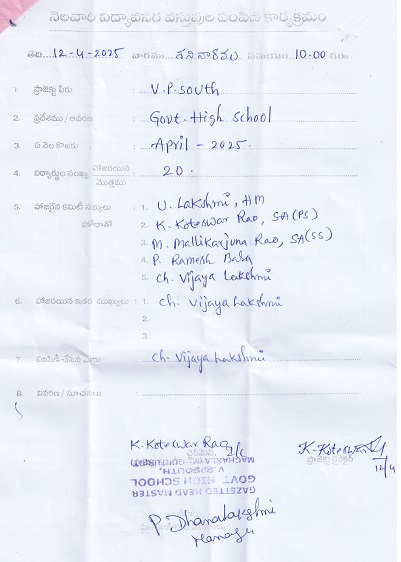 నెలవారి విద్యావసర వస్తువుల పంపిణి కార్యక్రమం
తేది..12-4-2025 వారము శనివారము సమయం 10.00 గం.
1. ప్రాజెక్టు పేరు V.P. South
2. ప్రదేశము / ఆవరణ Govt. High School
3. ఏ నెల కొఱకు April - 2025.
4. విద్యార్థుల సంఖ్య హాజరయిన / మొత్తము 20.
5. హాజరైన కమిటీ సభ్యులు 1. U. Lakshmi, HM
హోదాతో 2. K. Koteswar Rao, SA(PS)
3. M. Mallikarjuna Rao, SA(SS)
4. P. Ramesh Babu
5. Ch. Vijaya Lakshmi
6. హాజరయిన ఇతర ముఖ్యులు : 1. Ch. Vijaya Lakshmi
2.
3.
7. పంపిణి చేసిన వారు Ch. Vijaya Lakshmi
8. వివరణ / సూచనలు
K. Koteswar Rao I/c K. Koteswar
ప్రాజెక్టు
12/4
GAZETTED HEAD MASTER
GOVT HIGH SCHOOL
V.P. SOUTH,
P. Dhanalakshmi
Manager